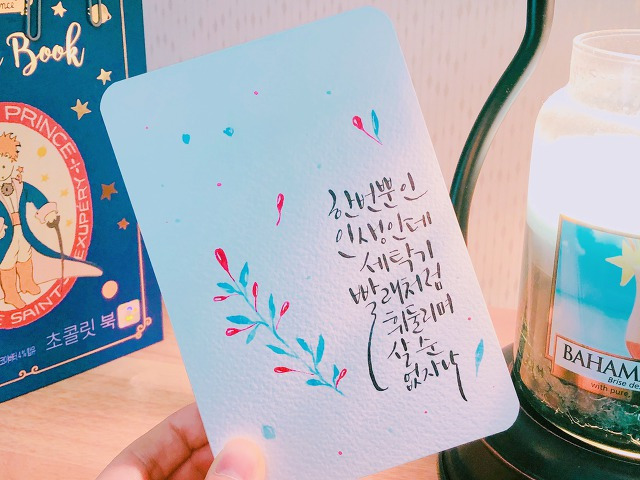 Book
PRINCE
SAINT-EXUPERY
초콜릿 북
한번뿐인
인생인데
세탁기
빨래처럼
휘둘리며
살순
없자나
BAHAM
Brise de
with pure